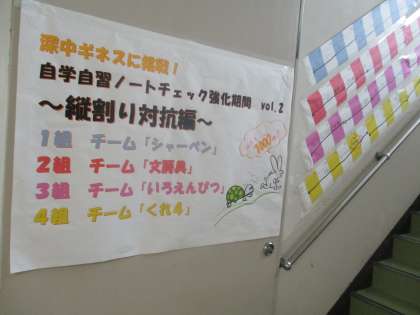 深中ギネスに挑戦！
自学自習ノートチェック強化期間 vol.2
～縦割り対抗編～
1組 チーム「シャーペン」
2組 チーム「文房具」
3組 チーム「いろえんぴつ」
4組 チーム「くれ4」